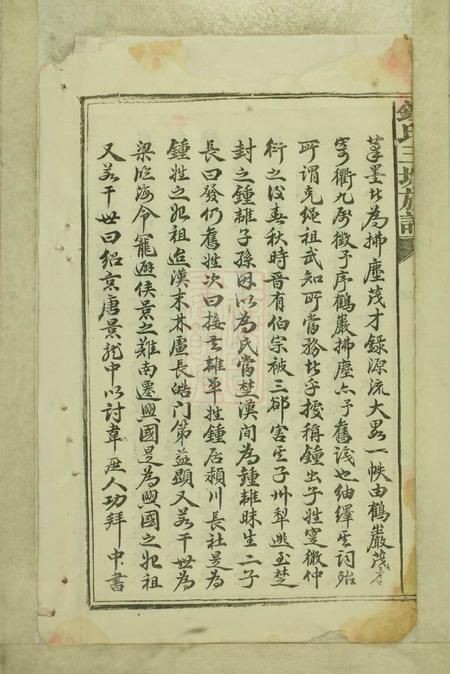 鍾氏三坡族譜
筆墨於為拂塵茂才錄源流大畧一帙由鶴巖茂才
寄衢九房徵予序鶴巖拂塵亦予舊識也紬繹其詞殆
所謂克繩祖武知所當務者乎按稱鍾出子姓寔微仲
衍之後春秋時晉有伯宗被三郤害其子州犁逃至楚
封之鍾離子孫因以為氏當楚漢間為鍾離昧生二子
長曰發仍舊姓次曰接去離單姓鍾居潁川長社是為
鍾姓之始祖迨漢末林盧長皓門第益顯又若干世為
梁臨海令寵避侯景之難南遷興國是為興國之始祖
又若干世曰紹京唐景龍中以討韋庶人功拜中書